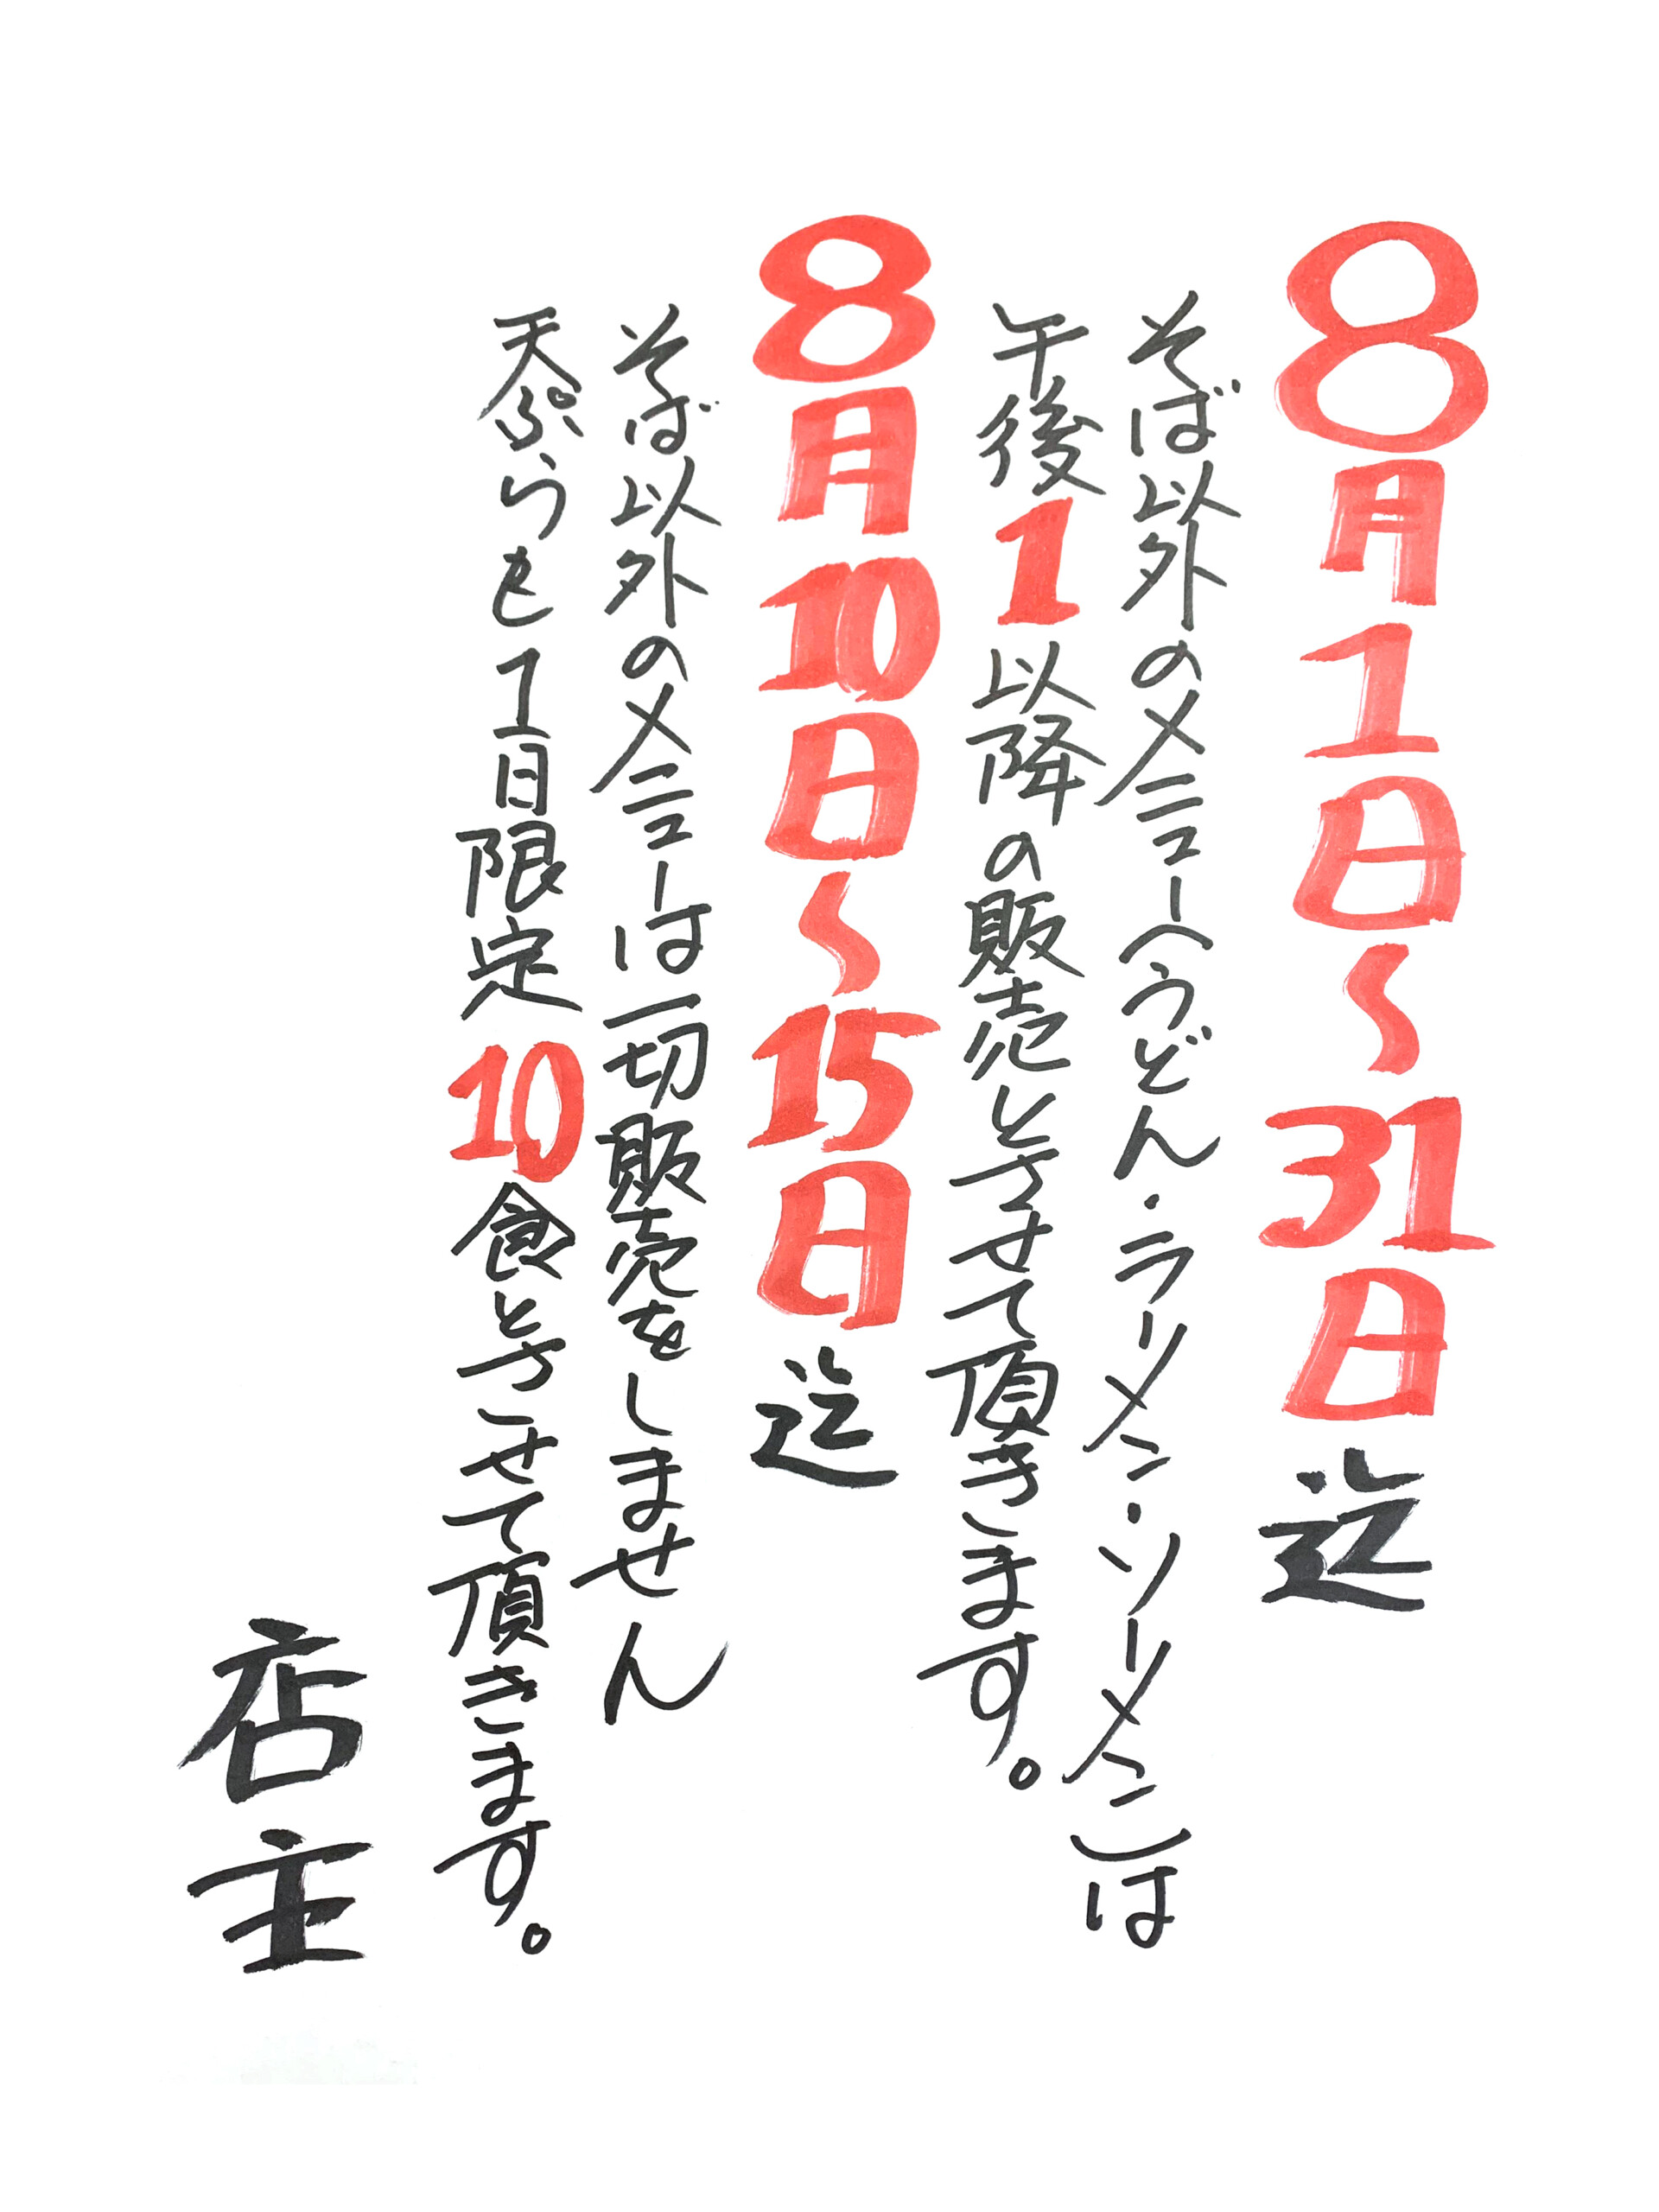 8月1日～31日迄
そば以外のメニュー(うどん・ラーメン・ソーメン)は
午後1以降の販売とさせて頂きます。
8月10日～15日迄
そば以外のメニューは一切販売をしません
天ぷらも1日限定10食とさせて頂きます。
店主